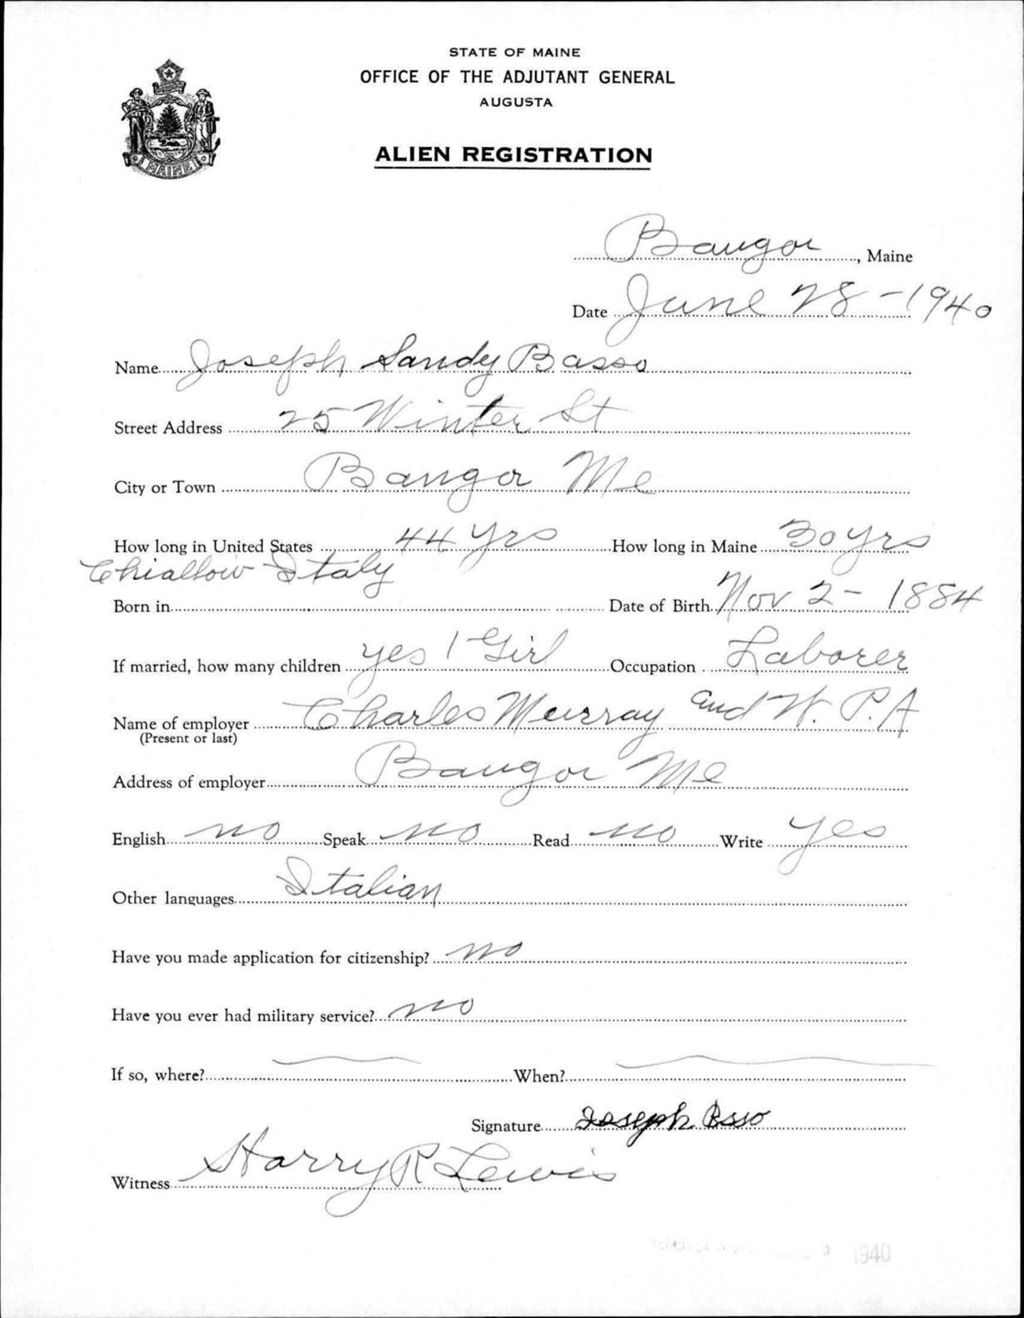 STATE OF MAINE
OFFICE OF THE ADJUTANT GENERAL
AUGUSTA
ALIEN REGISTRATION
MAINE
Bangor, Maine
Date June 28-1940
Name Joseph Sandy Basso
Street Address 25 Winter St
City or Town Bangor Me
How long in United States 44 yrs How long in Maine 30 yrs
Italy
Born in Date of Birth Nov 2-1884
If married, how many children yes 1 Girl Occupation Laborer
Name of employer Charles Murray and W.P.A
(Present or last)
Address of employer Bangor Me
English no Speak no Read no Write yes
Other languages Italian
Have you made application for citizenship? no
Have you ever had military service? no
If so, where? When?
Signature Joseph
Witness Harry R Lewis
1940